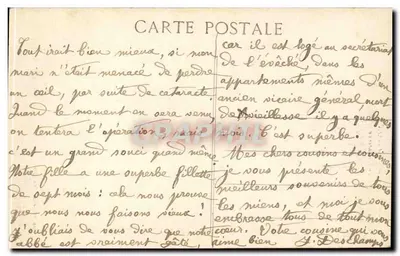 CARTE POSTALE
Tout irait bien mieux, si mon
mari n'était menacé de perdre
un œil, par suite de cataracte.
Quand le moment en sera venu,
on tentera l'opération, mais
c'est un grand souci quand même.
Notre fille a une superbe fillette
de sept mois : cela nous prouve
que nous nous faisons vieux !
J'oubliais de vous dire que notre
abbé est vraiment gâté,
car il est logé au secrétariat
de l'évêché, dans les
appartements mêmes d'un
ancien vicaire général, mort
de vieillesse il y a quelques
mois. C'est superbe.
Mes chers cousins et cousines,
je vous présente les
meilleurs souvenirs de tous
les miens, et moi je vous
embrasse tous de tout mon
cœur. Votre cousine qui vous
aime bien J. Deschamps